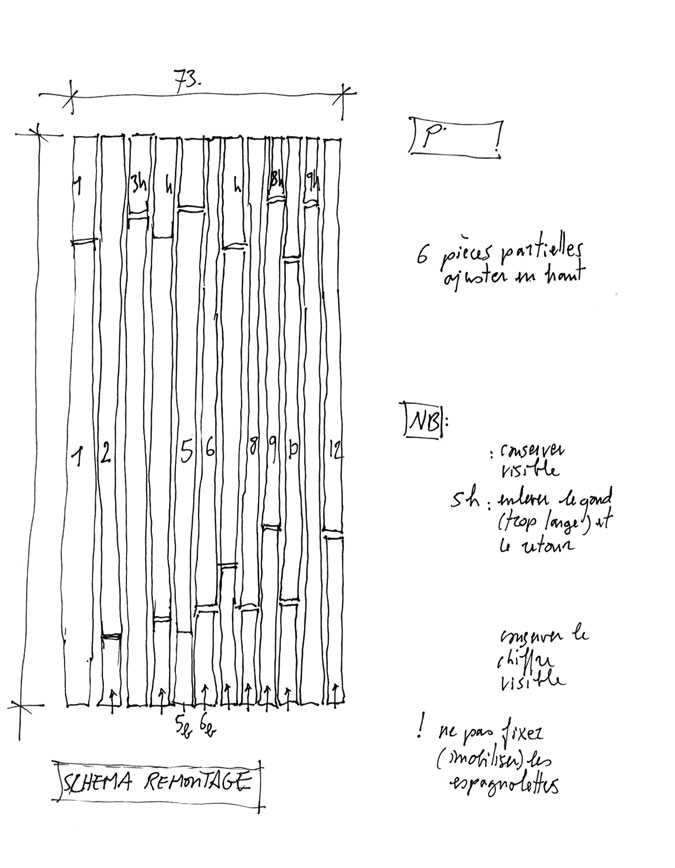 73.
P. !
1 3h h h 8h 9h
6 pièces partielles
ajuster en haut
NB:
1 2 5 6 8 9 10 12
: conserver
visible
5h : enlever le gond
(trop large) et
le retour
conserver le
chiffre
visible
5b 6b
! ne pas fixer
(imobiliser) les
espagnolettes
SCHEMA REMONTAGE